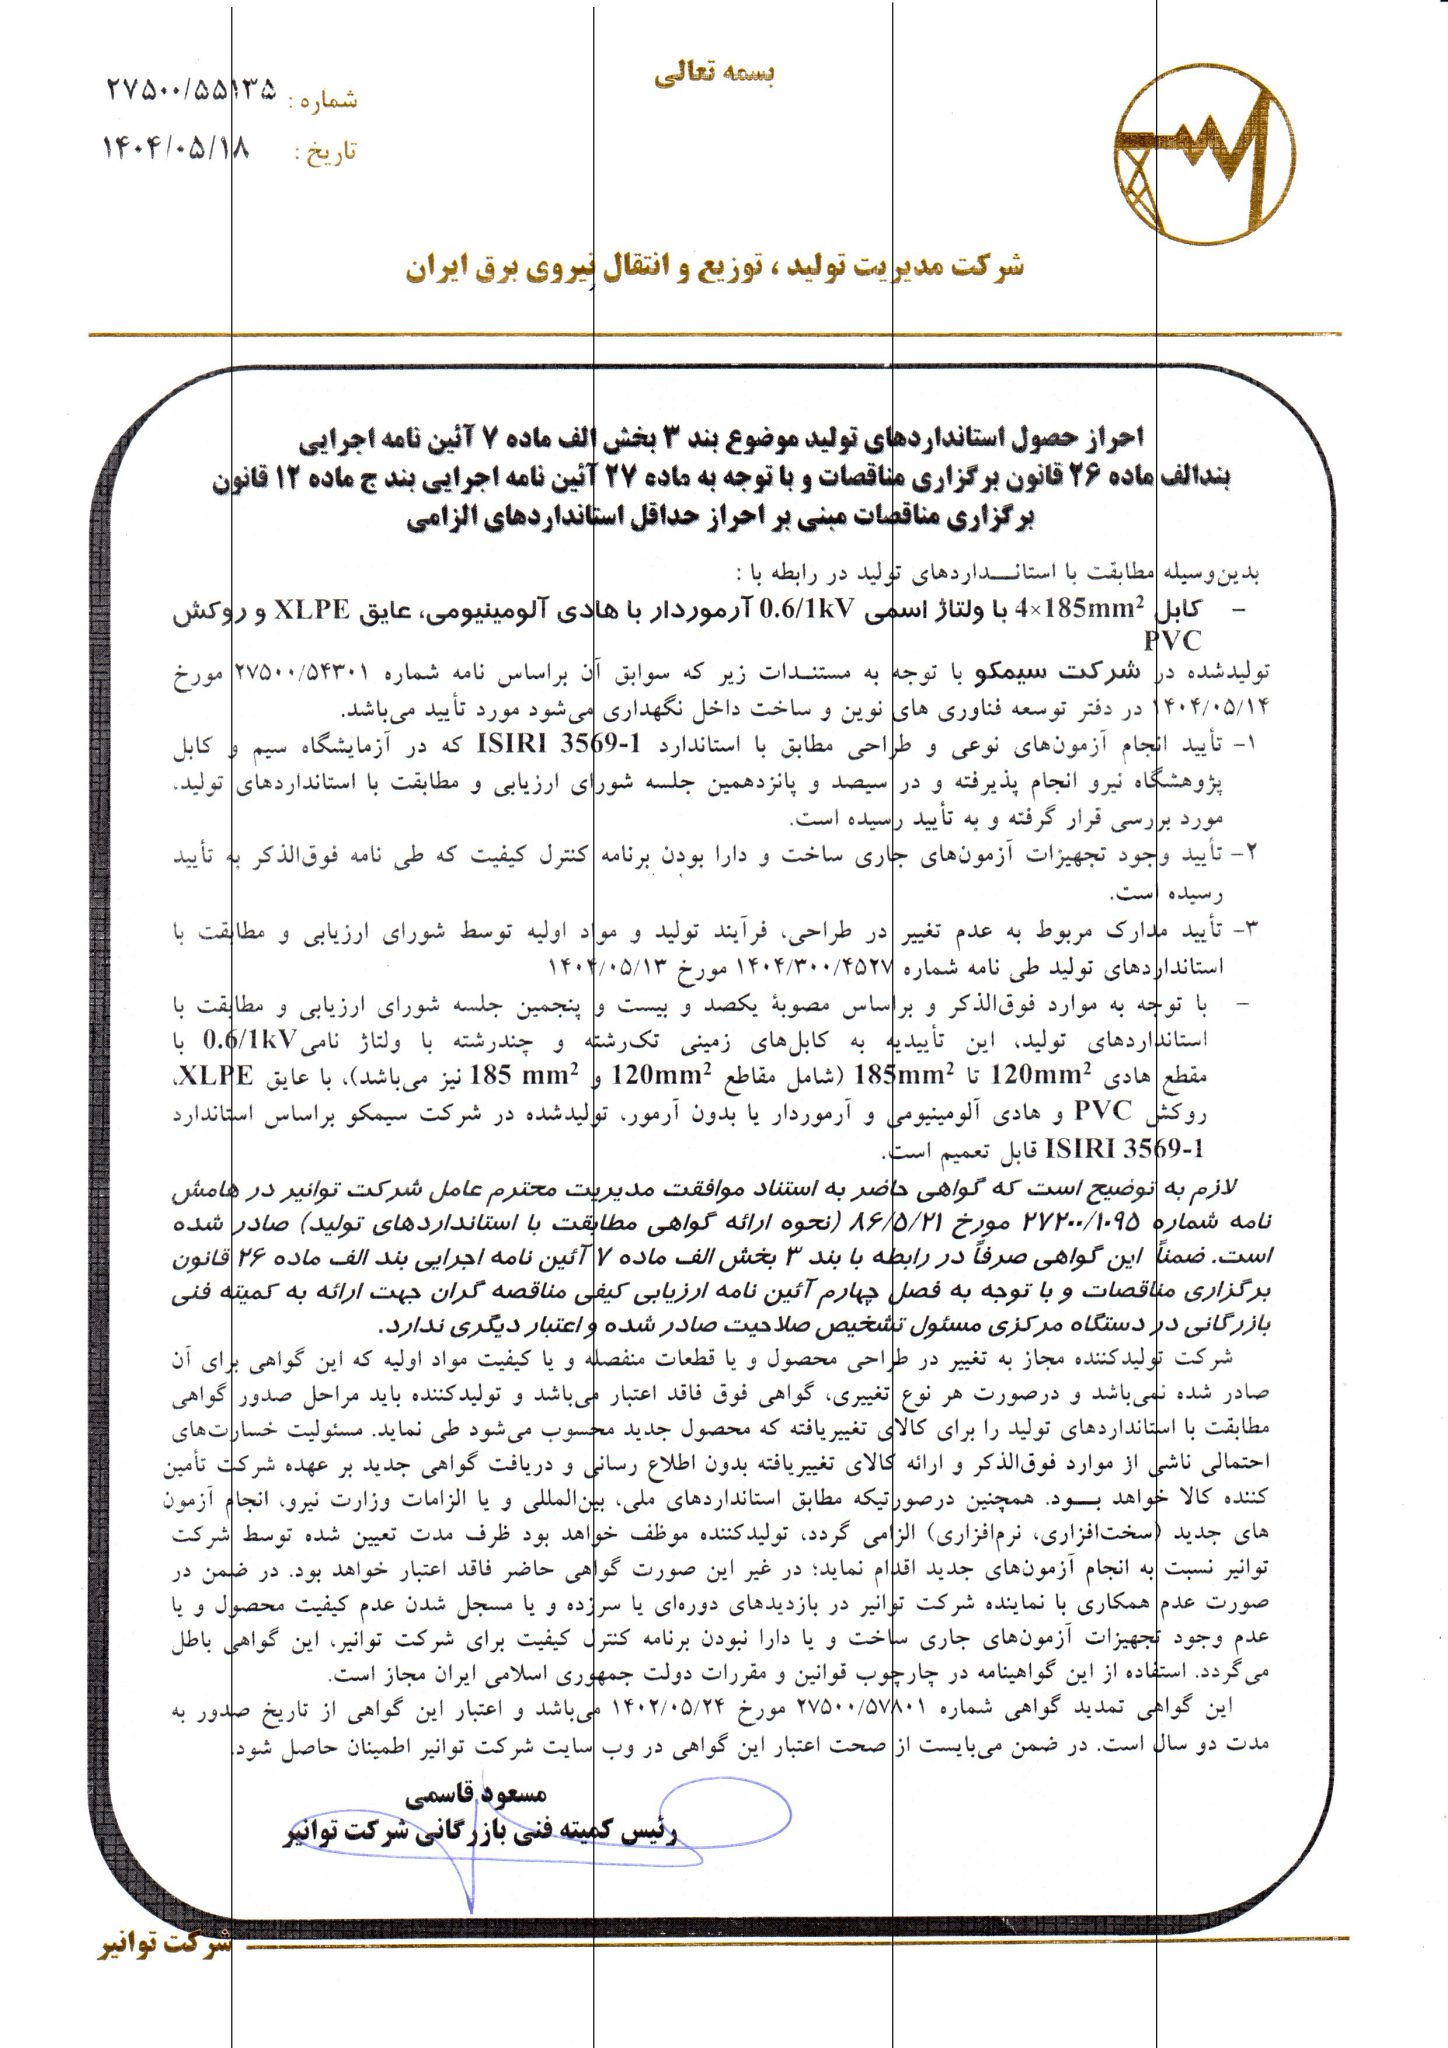 بسمه تعالی
شماره : ۲۷۵۰۰/۵۵۱۳۵
تاریخ : ۱۴۰۴/۰۵/۱۸
شرکت مدیریت تولید ، توزیع و انتقال نیروی برق ایران
احراز حصول استانداردهای تولید موضوع بند ۳ بخش الف ماده ۷ آئین نامه اجرایی
بندالف ماده ۲۶ قانون برگزاری مناقصات و با توجه به ماده ۲۷ آئین نامه اجرایی بند ج ماده ۱۲ قانون
برگزاری مناقصات مبنی بر احراز حداقل استانداردهای الزامی
بدین‌وسیله مطابقت با استانـــداردهای تولید در رابطه با :
- کابل 4×185mm² با ولتاژ اسمی 0.6/1kV آرموردار با هادی آلومینیومی، عایق XLPE و روکش
PVC
تولیدشده در شرکت سیمکو با توجه به مستندات زیر که سوابق آن براساس نامه شماره ۲۷۵۰۰/۵۴۳۰۱ مورخ
۱۴۰۴/۰۵/۱۴ در دفتر توسعه فناوری های نوین و ساخت داخل نگهداری می‌شود مورد تأیید می‌باشد.
۱- تأیید انجام آزمون‌های نوعی و طراحی مطابق با استاندارد ISIRI 3569-1 که در آزمایشگاه سیم و کابل
پژوهشگاه نیرو انجام پذیرفته و در سیصد و پانزدهمین جلسه شورای ارزیابی و مطابقت با استانداردهای تولید،
مورد بررسی قرار گرفته و به تأیید رسیده است.
۲- تأیید وجود تجهیزات آزمون‌های جاری ساخت و دارا بودن برنامه کنترل کیفیت که طی نامه فوق‌الذکر به تأیید
رسیده است.
۳- تأیید مدارک مربوط به عدم تغییر در طراحی، فرآیند تولید و مواد اولیه توسط شورای ارزیابی و مطابقت با
استانداردهای تولید طی نامه شماره ۱۴۰۴/۳۰۰/۴۵۲۷ مورخ ۱۴۰۴/۰۵/۱۳
- با توجه به موارد فوق‌الذکر و براساس مصوبۀ یکصد و بیست و پنجمین جلسه شورای ارزیابی و مطابقت با
استانداردهای تولید، این تأییدیه به کابل‌های زمینی تک‌رشته و چندرشته با ولتاژ نامی 0.6/1kV با
مقطع هادی 120mm² تا 185mm² (شامل مقاطع 120mm² و 185 mm² نیز می‌باشد)، با عایق XLPE،
روکش PVC و هادی آلومینیومی و آرموردار یا بدون آرمور، تولیدشده در شرکت سیمکو براساس استاندارد
ISIRI 3569-1 قابل تعمیم است.
لازم به توضیح است که گواهی حاضر به استناد موافقت مدیریت محترم عامل شرکت توانیر در هامش
نامه شماره ۲۷۲۰۰/۱۰۹۵ مورخ ۸۶/۵/۲۱ (نحوه ارائه گواهی مطابقت با استانداردهای تولید) صادر شده
است. ضمناً این گواهی صرفاً در رابطه با بند ۳ بخش الف ماده ۷ آئین نامه اجرایی بند الف ماده ۲۶ قانون
برگزاری مناقصات و با توجه به فصل چهارم آئین نامه ارزیابی کیفی مناقصه گران جهت ارائه به کمیته فنی
بازرگانی در دستگاه مرکزی مسئول تشخیص صلاحیت صادر شده و اعتبار دیگری ندارد.
شرکت تولیدکننده مجاز به تغییر در طراحی محصول و یا قطعات منفصله و یا کیفیت مواد اولیه که این گواهی برای آن
صادر شده نمی‌باشد و درصورت هر نوع تغییری، گواهی فوق فاقد اعتبار می‌باشد و تولیدکننده باید مراحل صدور گواهی
مطابقت با استانداردهای تولید را برای کالای تغییریافته که محصول جدید محسوب می‌شود طی نماید. مسئولیت خسارت‌های
احتمالی ناشی از موارد فوق‌الذکر و ارائه کالای تغییریافته بدون اطلاع رسانی و دریافت گواهی جدید بر عهده شرکت تأمین
کننده کالا خواهد بـــود. همچنین درصورتیکه مطابق استانداردهای ملی، بین‌المللی و یا الزامات وزارت نیرو، انجام آزمون
های جدید (سخت‌افزاری، نرم‌افزاری) الزامی گردد، تولیدکننده موظف خواهد بود ظرف مدت تعیین شده توسط شرکت
توانیر نسبت به انجام آزمون‌های جدید اقدام نماید؛ در غیر این صورت گواهی حاضر فاقد اعتبار خواهد بود. در ضمن در
صورت عدم همکاری با نماینده شرکت توانیر در بازدیدهای دوره‌ای یا سرزده و یا مسجل شدن عدم کیفیت محصول و یا
عدم وجود تجهیزات آزمون‌های جاری ساخت و یا دارا نبودن برنامه کنترل کیفیت برای شرکت توانیر، این گواهی باطل
می‌گردد. استفاده از این گواهینامه در چارچوب قوانین و مقررات دولت جمهوری اسلامی ایران مجاز است.
این گواهی تمدید گواهی شماره ۲۷۵۰۰/۵۷۸۰۱ مورخ ۱۴۰۲/۰۵/۲۴ می‌باشد و اعتبار این گواهی از تاریخ صدور به
مدت دو سال است. در ضمن می‌بایست از صحت اعتبار این گواهی در وب سایت شرکت توانیر اطمینان حاصل شود.
مسعود قاسمی
رئیس کمیته فنی بازرگانی شرکت توانیر
شرکت توانیر